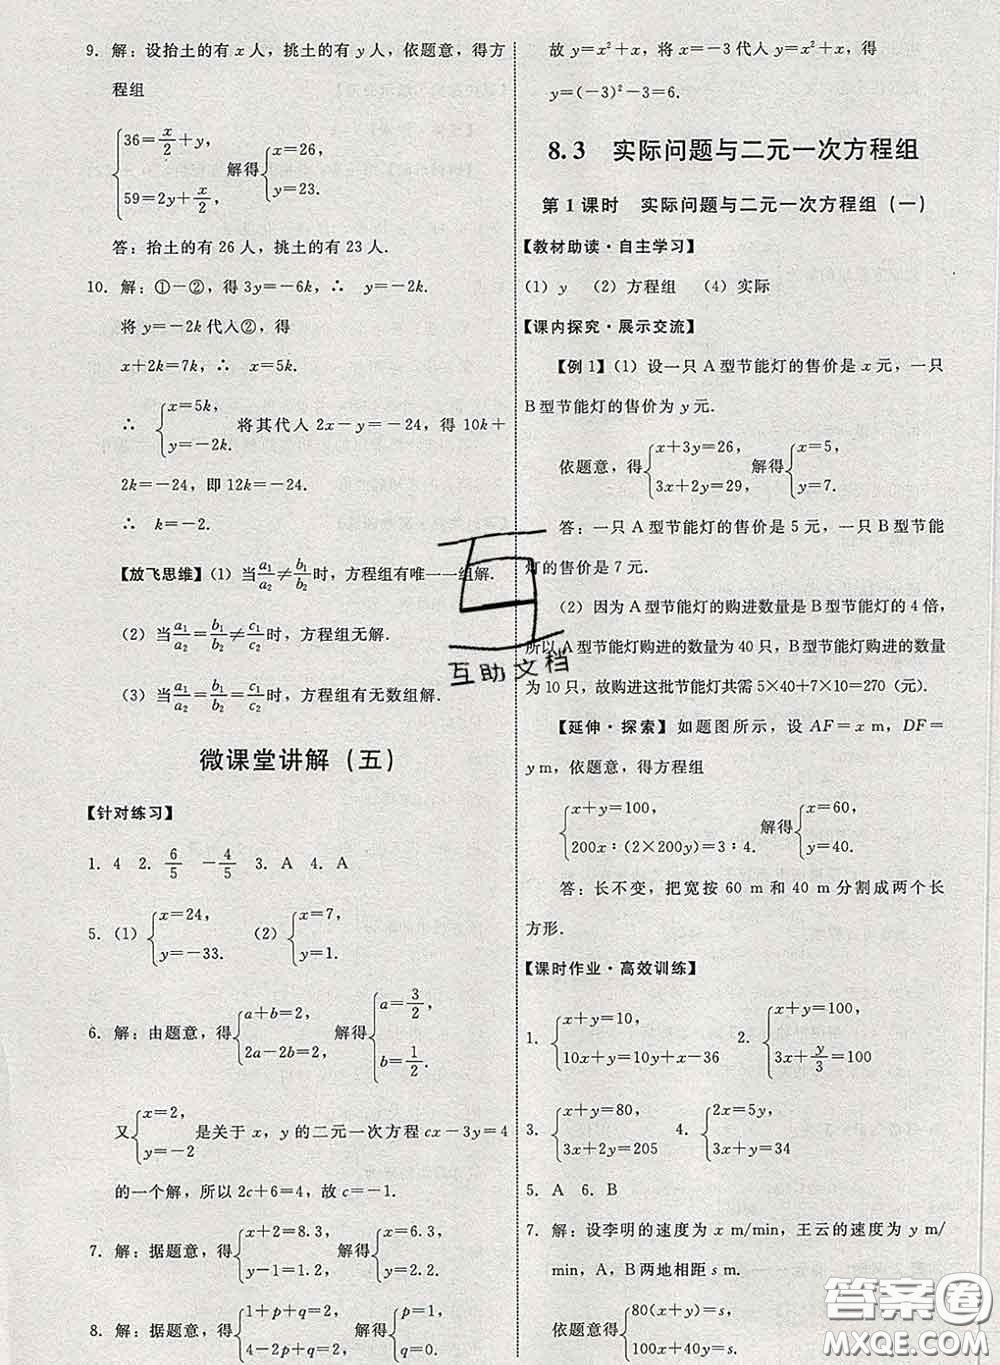 9. 解：设抬土的有 x 人，挑土的有 y 人，依题意，得方
程组
{36=x/2+y, 59=2y+x/2 解得{x=26, y=23.
答：抬土的有 26 人，挑土的有 23 人.
10. 解：①－②，得 3y=-6k，∴ y=-2k.
将 y=-2k代人②，得
x+2k=7k，∴ x=5k.
∴ {x=5k, y=-2k. 将其代人 2x-y=-24，得 10k+
2k=-24，即 12k=-24.
∴ k=-2.
【放飞思维】(1) 当a₁/a₂≠b₁/b₂时，方程组有唯一一组解.
(2) 当a₁/a₂=b₁/b₂≠c₁/c₂时，方程组无解.
(3) 当a₁/a₂=b₁/b₂=c₁/c₂时，方程组有无数组解.
微课堂讲解（五）
【针对练习】
1. 4 2. 6/5 -4/5 3. A 4. A
5. (1) {x=24, y=-33. (2) {x=7, y=1.
6. 解：由题意，得{a+b=2, 2a-2b=2, 解得{a=3/2, b=1/2.
又{x=2, y=-2是关于 x，y的二元一次方程cx-3y=4
的一个解，所以 2c+6=4，故 c=-1.
7. 解：据题意，得{x+2=8.3, y-1=1.2, 解得{x=6.3, y=2.2.
8. 解：据题意，得{1+p+q=2, 4-2p+q=2, 解得{p=1, q=0.
故 y=x²+x，将 x=-3 代人 y=x²+x，得
y=(-3)²-3=6.
8.3 实际问题与二元一次方程组
第 1 课时 实际问题与二元一次方程组（一）
【教材助读·自主学习】
(1) y (2) 方程组 (4) 实际
【课内探究·展示交流】
【例 1】(1) 设一只 A 型节能灯的售价是 x 元，一只
B 型节能灯的售价为 y 元.
依题意，得{x+3y=26, 3x+2y=29, 解得{x=5, y=7.
答：一只 A 型节能灯的售价是 5 元，一只 B 型节能
灯的售价是 7 元.
(2) 因为 A 型节能灯的购进数量是 B 型节能灯的 4 倍，
所以 A 型节能灯购进的数量为 40 只，B 型节能灯购进的数量
为 10 只，故购进这批节能灯共需 5×40+7×10=270（元）.
【延伸·探索】 如题图所示，设 AF=x m，DF=
y m，依题意，得方程组
{x+y=100, 200x∶(2×200y)=3∶4. 解得{x=60, y=40.
答：长不变，把宽按 60 m 和 40 m 分割成两个长
方形.
【课时作业·高效训练】
1. {x+y=10, 10x+y=10y+x-36 2. {x+y=100, 3x+y/3=100
3. {x+y=80, 3x+2y=205 4. {2x=5y, 3x-2y=11
5. A 6. B
7. 解：设李明的速度为 x m/min，王云的速度为 y m/
min，A，B 两地相距 s m.
依题意得{80(x+y)=s, 100x+40y=s.
互助文档
答案圈
MXQE.COM